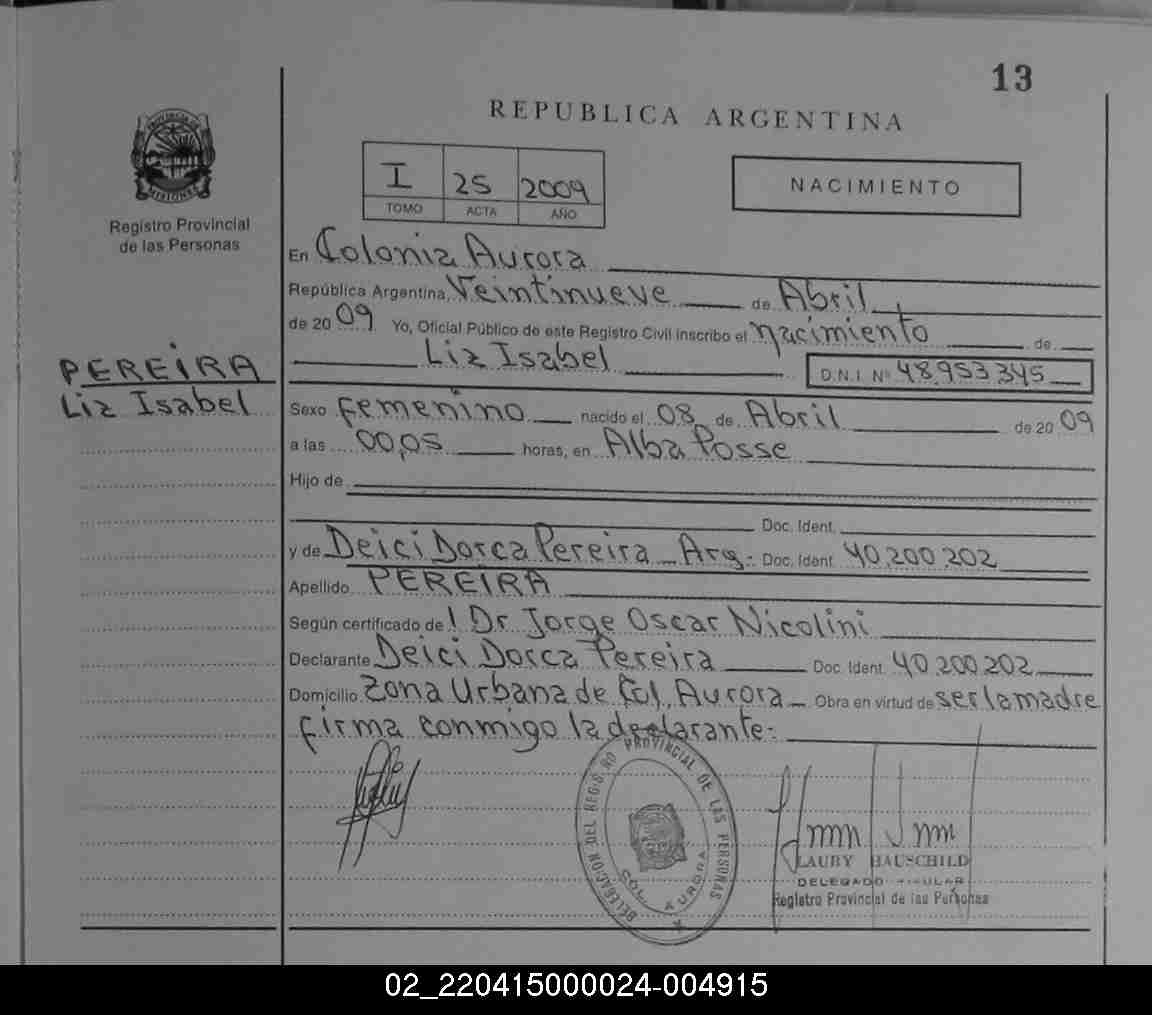 13
REPUBLICA ARGENTINA
PROVINCIA DE
MISIONES
Registro Provincial
de las Personas
I 25 2009
TOMO ACTA AÑO
NACIMIENTO
En Colonia Aurora
República Argentina, Veintinueve de Abril
de 2009 Yo, Oficial Público de este Registro Civil inscribo el nacimiento de
Liz Isabel D.N.I. Nº 48.953.345
PEREIRA
Liz Isabel
Sexo femenino nacido el 08 de Abril de 2009
a las 00,05 horas, en Alba Posse
Hijo de
Doc. Ident.
y de Deici Dorca Pereira Arg.- Doc. Ident. 40.200.202
Apellido PEREIRA
Según certificado de Dr Jorge Oscar Nicolini
Declarante Deici Dorca Pereira Doc. Ident. 40.200.202
Domicilio Zona Urbana de Col. Aurora Obra en virtud de ser la madre
firma conmigo la declarante:-
DELEGACION DEL REGISTRO PROVINCIAL DE LAS PERSONAS
COL. AURORA
LAURY HAUSCHILD
DELEGADO TITULAR
Registro Provincial de las Personas
02_220415000024-004915